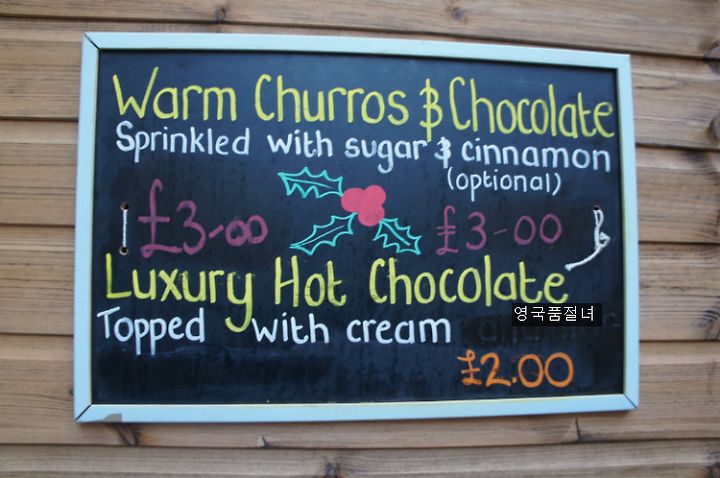 Warm Churros & Chocolate
Sprinkled with sugar & cinnamon
(optional)
£3-00 £3-00
Luxury Hot Chocolate
영국품절녀
Topped with cream
£2.00